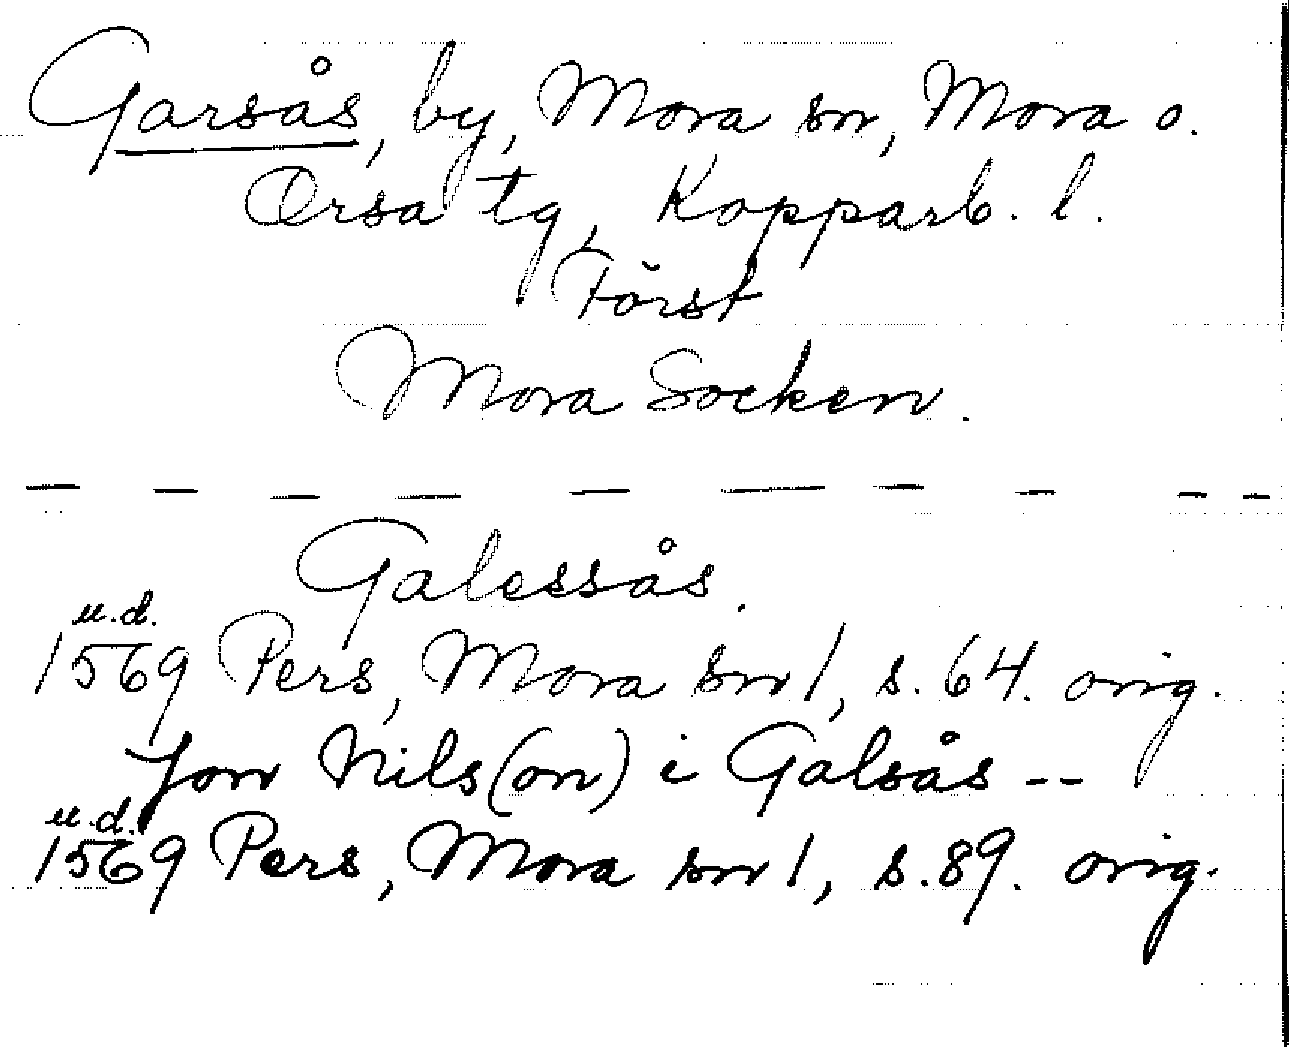 Garsås, by, Mora sn, Mora o.
Orsa tg, Kopparb. l.
Först
Mora Socken.
Galessås.
u.d.
1569 Pers, Mora sn 1, s. 64. orig.
Jon Nils(on) i Galsås --
u.d.
1569 Pers, Mora sn 1, s. 89. orig.